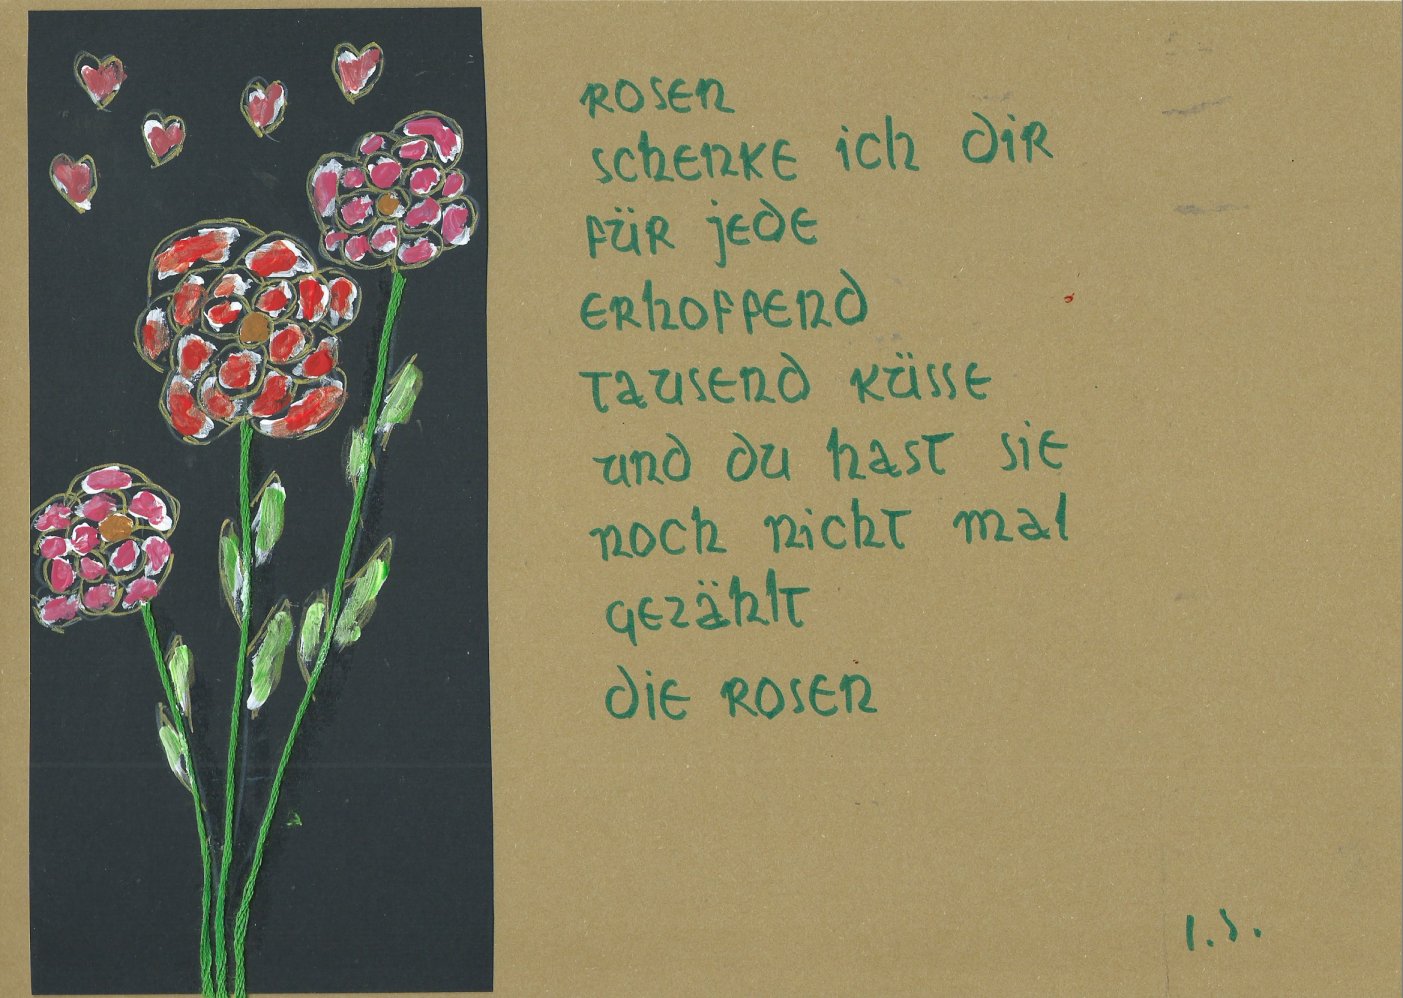 Rosen
schenke ich dir
für jede
erhoffend
tausend küsse
und du hast sie
noch nicht mal
gezählt
die Rosen
I.S.